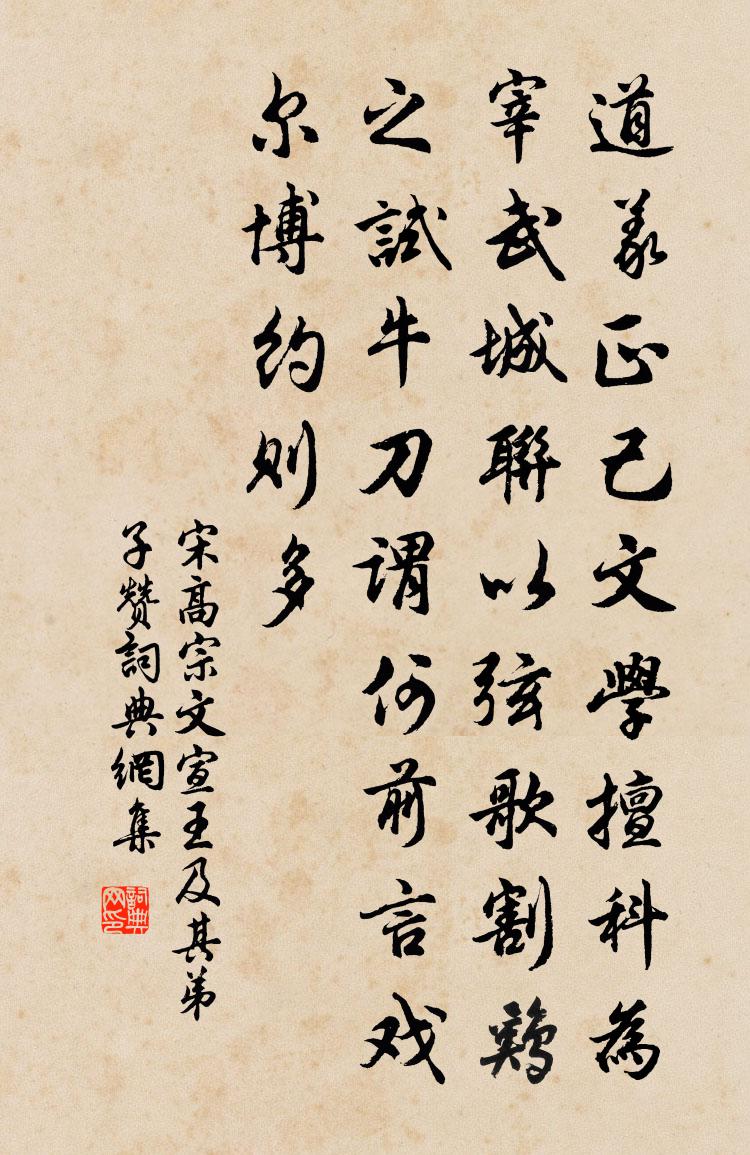 道義正己文學擅科為
宰武城聯以弦歌割鷄
之試牛刀謂何前言戏
尔博約则多
宋高宗文宣王及其弟
子贊詞典網集
詞典
网印